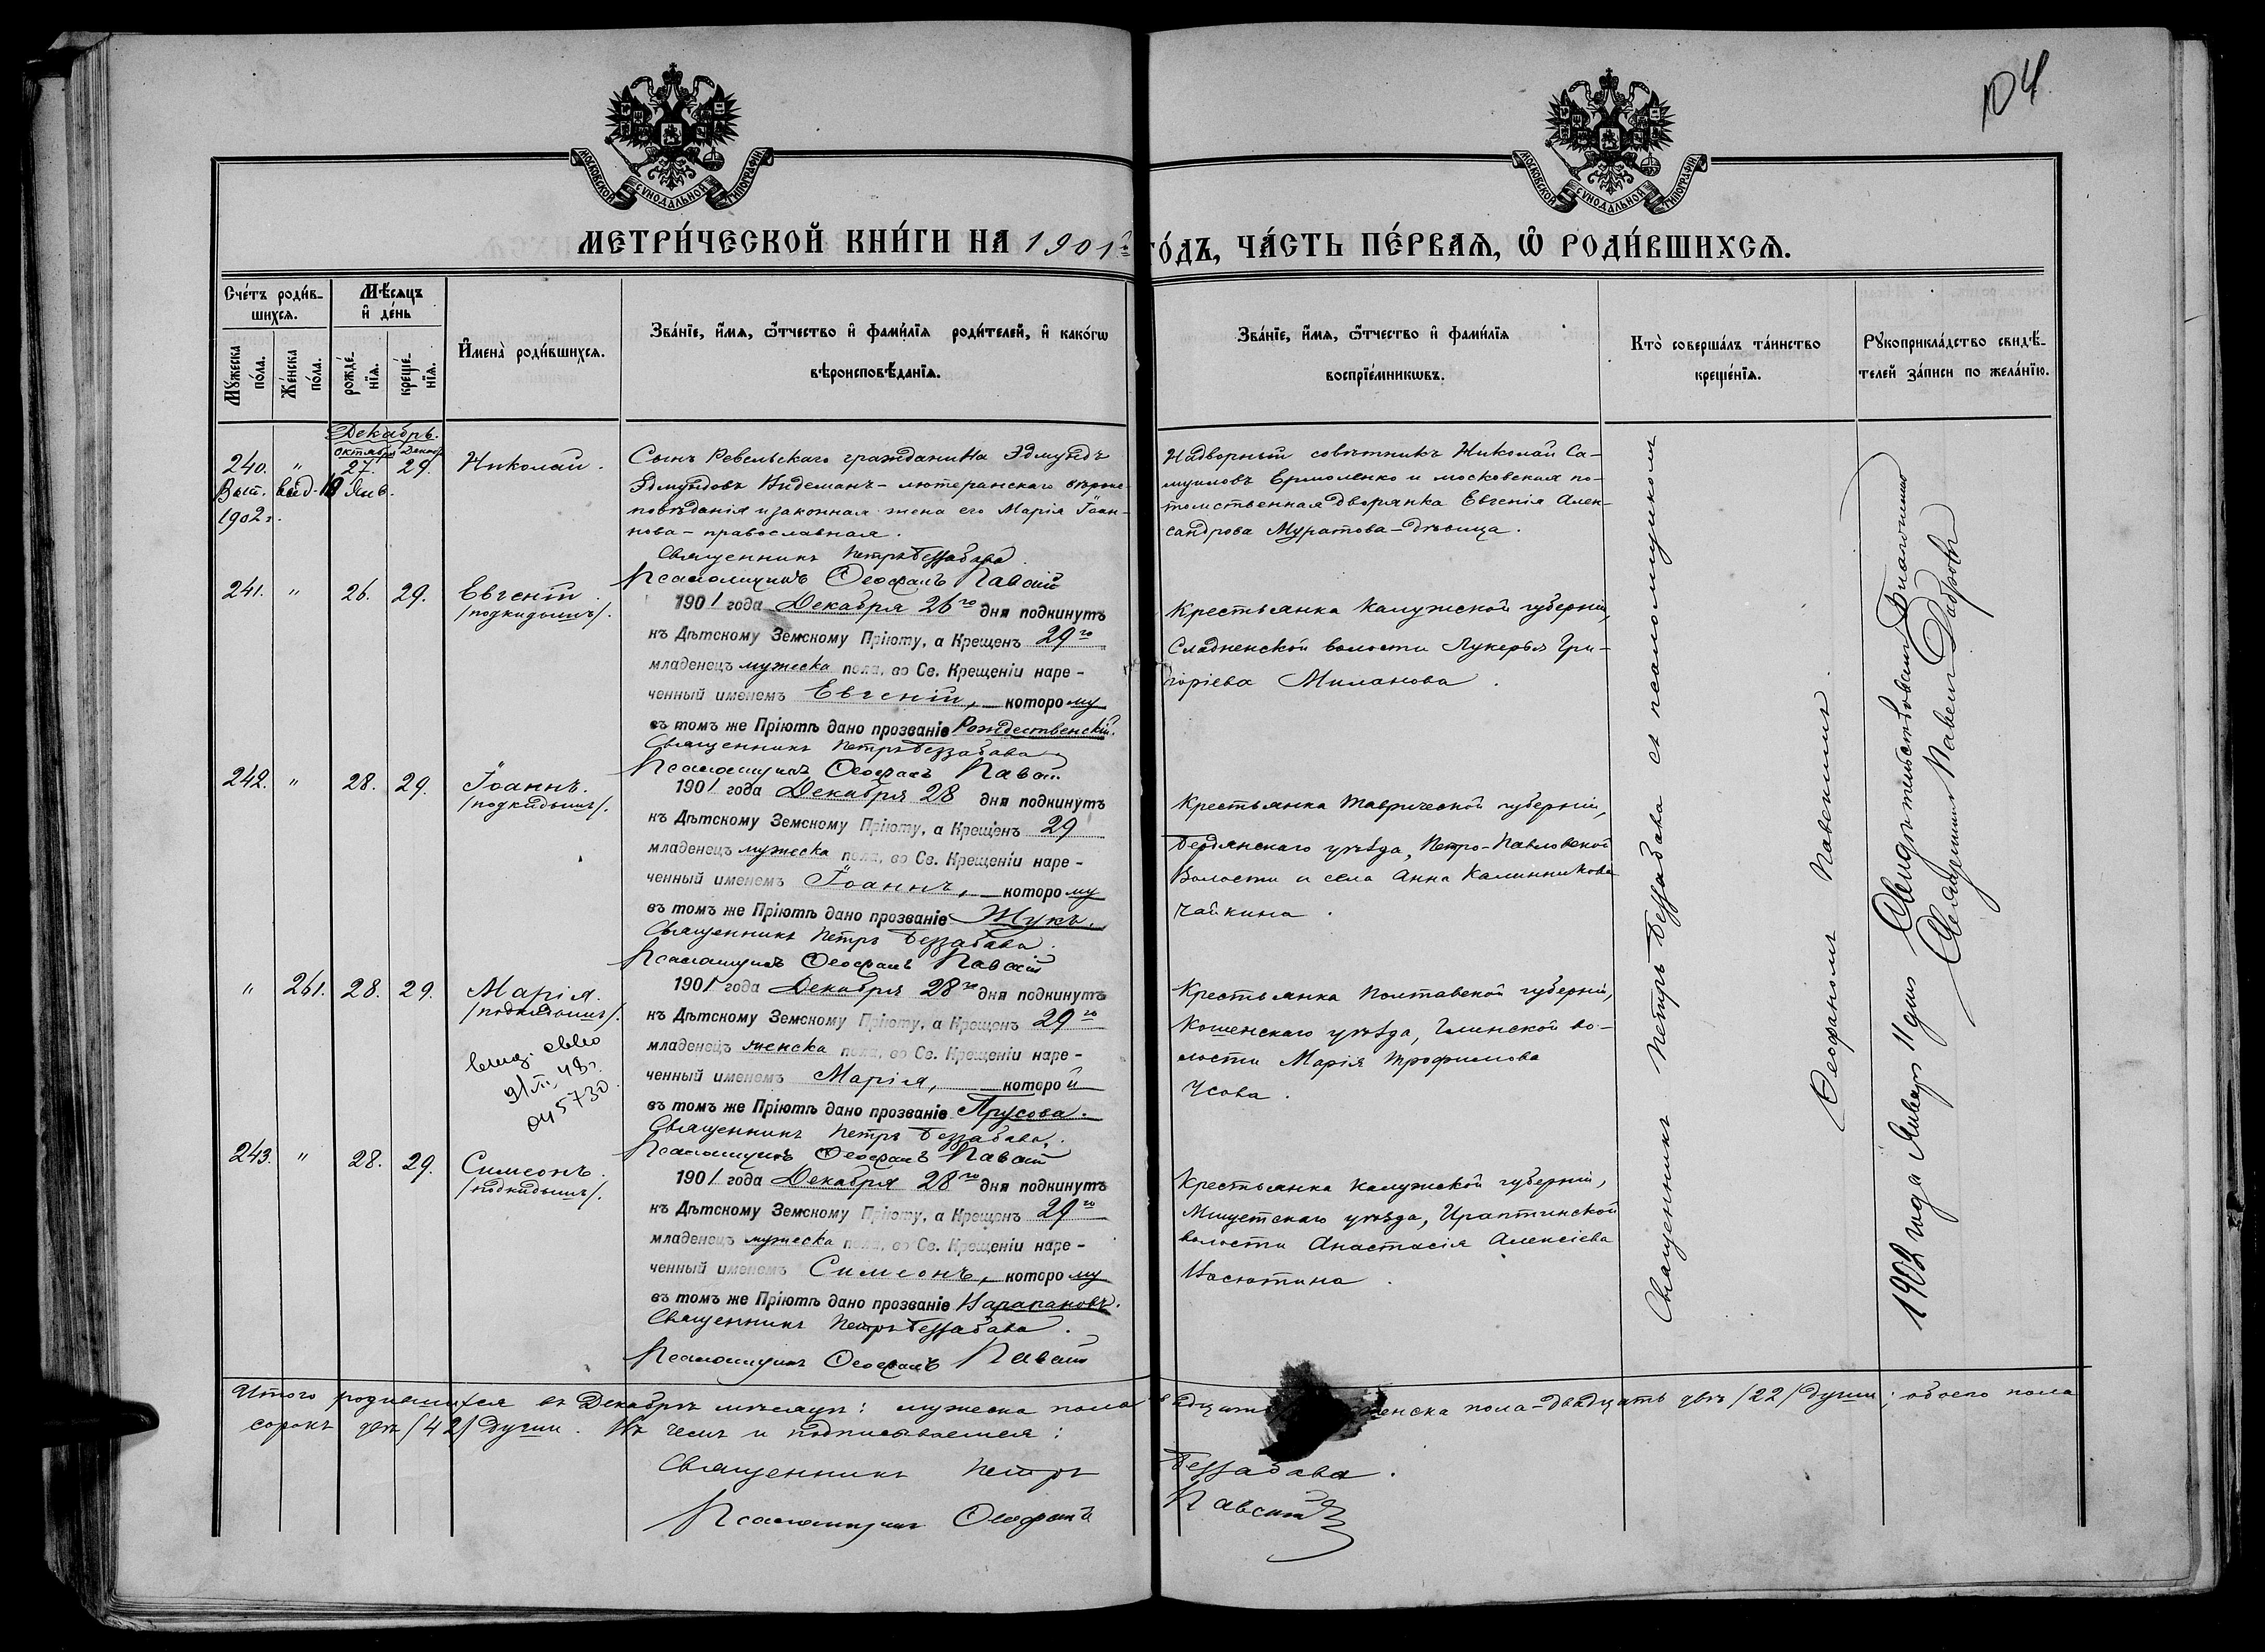 104
МОСКОВСКОЙ СУНОДАЛЬНОЙ ТИПОГРАФІИ
МОСКОВСКОЙ СУНОДАЛЬНОЙ ТИПОГРАФІИ
МЕТРИ́ЧЕСКОЙ КНИ́ГИ НА 1901й
ГО́ДЪ, ЧА́СТЬ ПЕ́РВАѦ, Ѽ РОДИ́ВШИХСѦ.
Сче́тъ роди́в-
шихсѧ.
Мѣ́сяцъ
и҆ де́нь
Мꙋ́жеска по́ла.
Же́нска по́ла.
рожде́-
нїѧ.
креще́-
нїѧ.
И҆мена̀ роди́вшихсѧ.
Зва́нїе, и҆́мѧ, ѻ҆́тчество и҆ фами́лїѧ роди́телей, и҆ како́гѡ
вѣроисповѣ́данїѧ.
Зва́нїе, и҆́мѧ, ѻ҆́тчество и҆ фами́лїѧ
воспрїе́мникѡвъ.
Кто̀ соверша́лъ та́инство
креще́нїѧ.
Рꙋкоприкла́дство свидѣ́-
телей за́писи по жела́нїю.
Декабрь.
Октября Декаб.
240. " 27. 29. Николай.
Вып. выд. 18 Янв.
1902 г.
Сынъ Ревельскаго гражданина Эдмундъ
Эдмундовъ Видеманъ - лютеранскаго вѣроис-
повѣданія и законная жена его Марія Іоан-
нова - православная.
Священникъ Петръ Беззабава
Псаломщикъ Ѳеофанъ Павскій
Надворный совѣтникъ Николай Са-
муиловъ Ермоленко и московская по-
томственная дворянка Евгенія Алек-
сандрова Муратова - дѣвица.
241. " 26. 29. Евгеній.
/подкидышъ/.
1901 года Декабря 26го дня подкинутъ
къ Дѣтскому Земскому Пріюту, а Крещенъ 29го
младенецъ мужеска пола, во Св. Крещеніи наре-
ченный именемъ Евгеній, которому
въ томъ же Пріютѣ дано прозваніе Рождественскій.
Священникъ Петръ Беззабава
Псаломщикъ Ѳеофанъ Павскій
Крестьянка Калужской губерніи,
Сладненской волости Лукерья Гри-
горіева Миланова.
242. " 28. 29. Іоаннъ.
/подкидышъ/.
1901 года Декабря 28 дня подкинутъ
къ Дѣтскому Земскому Пріюту, а Крещенъ 29
младенецъ мужеска пола, во Св. Крещеніи наре-
ченный именемъ Іоаннъ, которому
въ томъ же Пріютѣ дано прозваніе Жукъ.
Священникъ Петръ Беззабава.
Псаломщикъ Ѳеофанъ Павскій
Крестьянка Таврической губерніи,
Бердянскаго уѣзда, Петро-Павловской
Волости и села Анна Калинникова
Чайкина.
" 261. 28. 29. Марія.
/подкидышъ/.
045730.
1901 года Декабря 28го дня подкинутъ
къ Дѣтскому Земскому Пріюту, а Крещенъ 29го
младенецъ женска пола, во Св. Крещеніи наре-
ченный именемъ Марія, которой
въ томъ же Пріютѣ дано прозваніе Прусова.
Священникъ Петръ Беззабава.
Псаломщикъ Ѳеофанъ Павскій
Крестьянка Полтавской губерніи,
уѣзда, Глинской во-
лости Марія Трофимова
Усова.
243. " 28. 29. Симеонъ.
/подкидышъ/.
1901 года Декабря 28го дня подкинутъ
къ Дѣтскому Земскому Пріюту, а Крещенъ 29го
младенецъ мужеска пола, во Св. Крещеніи наре-
ченный именемъ Симеонъ, которому
въ томъ же Пріютѣ дано прозваніе
Священникъ Петръ Беззабава.
Псаломщикъ Ѳеофанъ Павскій
Крестьянка Калужской губерніи,
уѣзда,
волости Анастасія Алексіева
Васютина.
Священникъ Петръ Беззабава съ псаломщикомъ
Ѳеофаномъ Павскимъ.
1902 года Января 11 дня Свидѣтельствовалъ Благочинный
Священникъ Павелъ
Итого родившихся въ Декабрѣ мѣсяцѣ: мужеска пола женска пола - двадцать двѣ /22/ души; обоего пола
сорокъ двѣ /42/ души. Въ чемъ и подписываемся:
Священникъ Петръ Беззабава.
Псаломщикъ Ѳеофанъ Павскій